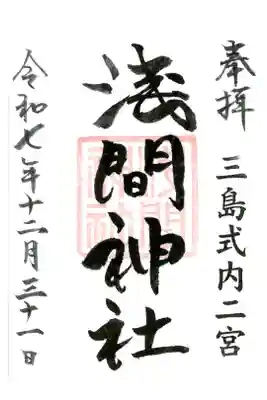 奉拝 三島式内二宮
浅間神社
令和七年十二月三十一日